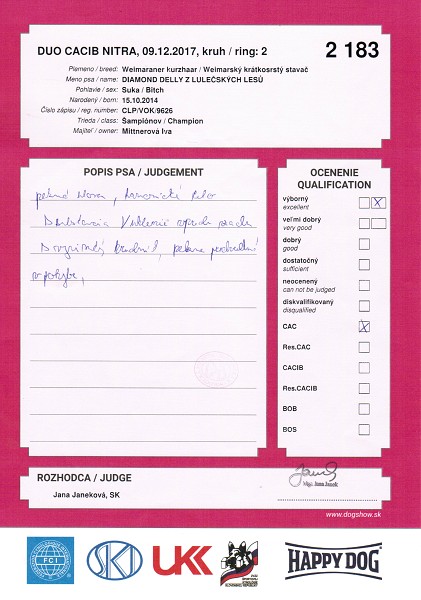 DUO CACIB NITRA, 09.12.2017, kruh / ring: 2 2 183
Plemeno / breed: Weimaraner kurzhaar / Weimarský krátkosrstý stavač
Meno psa / name: DIAMOND DELLY Z LULEČSKÝCH LESŮ
Pohlavie / sex: Suka / Bitch
Narodený / born: 15.10.2014
Číslo zápisu / reg. number: CLP/VOK/9626
Trieda / class: Šampiónov / Champion
Majiteľ / owner: Mittnerová Iva
POPIS PSA / JUDGEMENT
pekná hlava,
v pohybe,
OCENENIE
QUALIFICATION
výborný
excellent
X
veľmi dobrý
very good
dobrý
good
dostatočný
sufficient
neocenený
can not be judged
diskvalifikovaný
disqualified
CAC X
Res.CAC
CACIB
Res.CACIB
BOB
BOS
ROZHODCA / JUDGE
Jana Janeková, SK
Mgr. Jana Janek
www.dogshow.sk
FCI
SKJ
UKK
HAPPY DOG